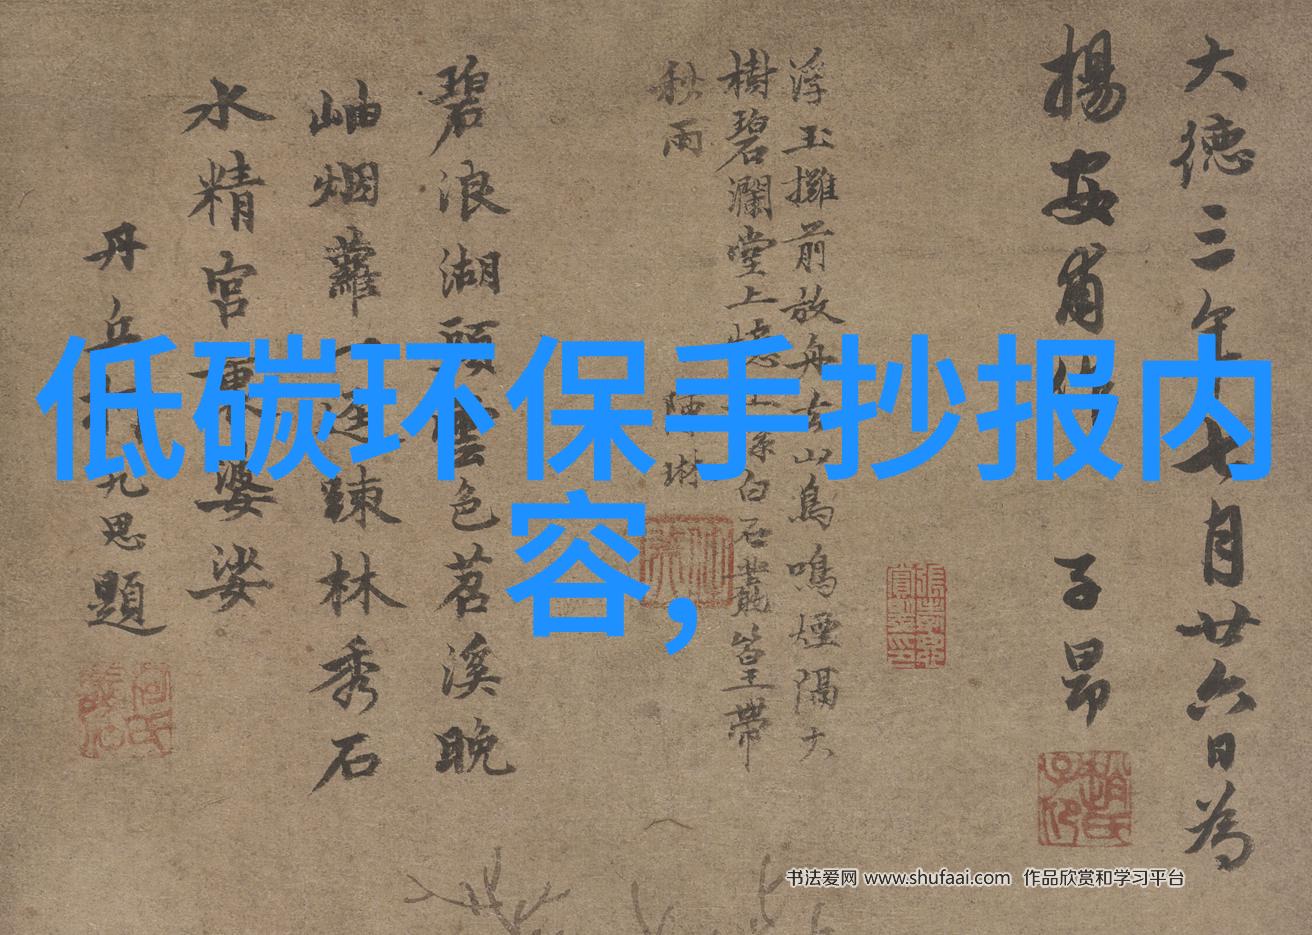 大德三年七月廿六日為
揚安甫作 子昂
浮玉攤前放舟去山鳥鳴煙隔大
樹碧瀾堂上憶 白石 篁帶
秋雨 陳琳
碧浪湖頭雲色苕溪晚
岫烟蘿一逕踈林秀石
水精宮裏婆娑
丹丘 九思題
低碳环保手抄报内
容，
书法爱网 www.shufaai.com 作品欣赏和学习平台